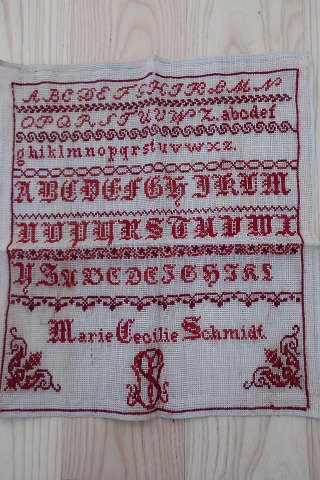 ABCDEFGHIKLMN
OPQRSTUVW Z. abcdef
ghiklmnopqrstuvwxz.
ABCDEFGHIKLM
NOPQRSTUVWX
YZ ABCDEFGHIKL
Marie Cecilie Schmidt.